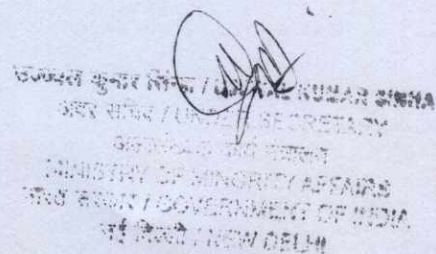 कुमार सिन्हा / UJJWAL KUMAR SINHA
अवर सचिव / UNDER SECRETARY
MINISTRY OF MINORITY AFFAIRS
भारत सरकार / GOVERNMENT OF INDIA
नई दिल्ली / NEW DELHI